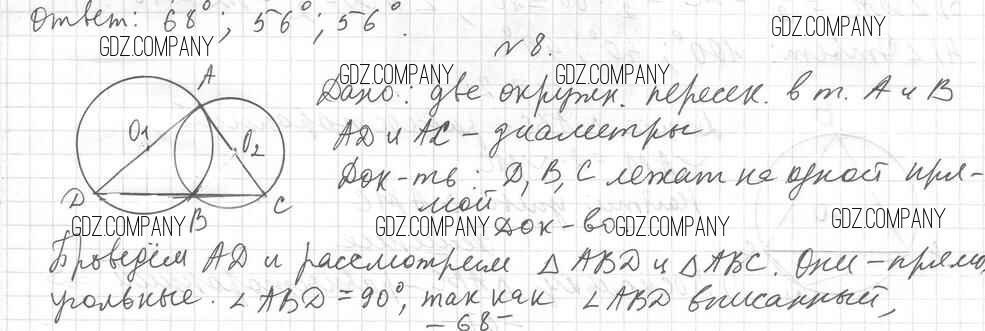 Ответ: 68°; 56°; 56°.
GDZ.COMPANY
GDZ.COMPANY
№ 8.
GDZ.COMPANY
GDZ.COMPANY
A
O1
O2
D
B
C
Дано: две окружн. пересек. в т. A и B
AD и AC – диаметры
Док-ть: D, B, C лежат на одной пря-
мой
GDZ.COMPANY
GDZ.COMPANY
Док-во
GDZ.COMPANY
GDZ.COMPANY
Проведём AD и рассмотрим △ ABD и △ABC. Они – прямо
угольные. ∠ ABD = 90°, так как ∠ ABD вписанный,
– 68 –